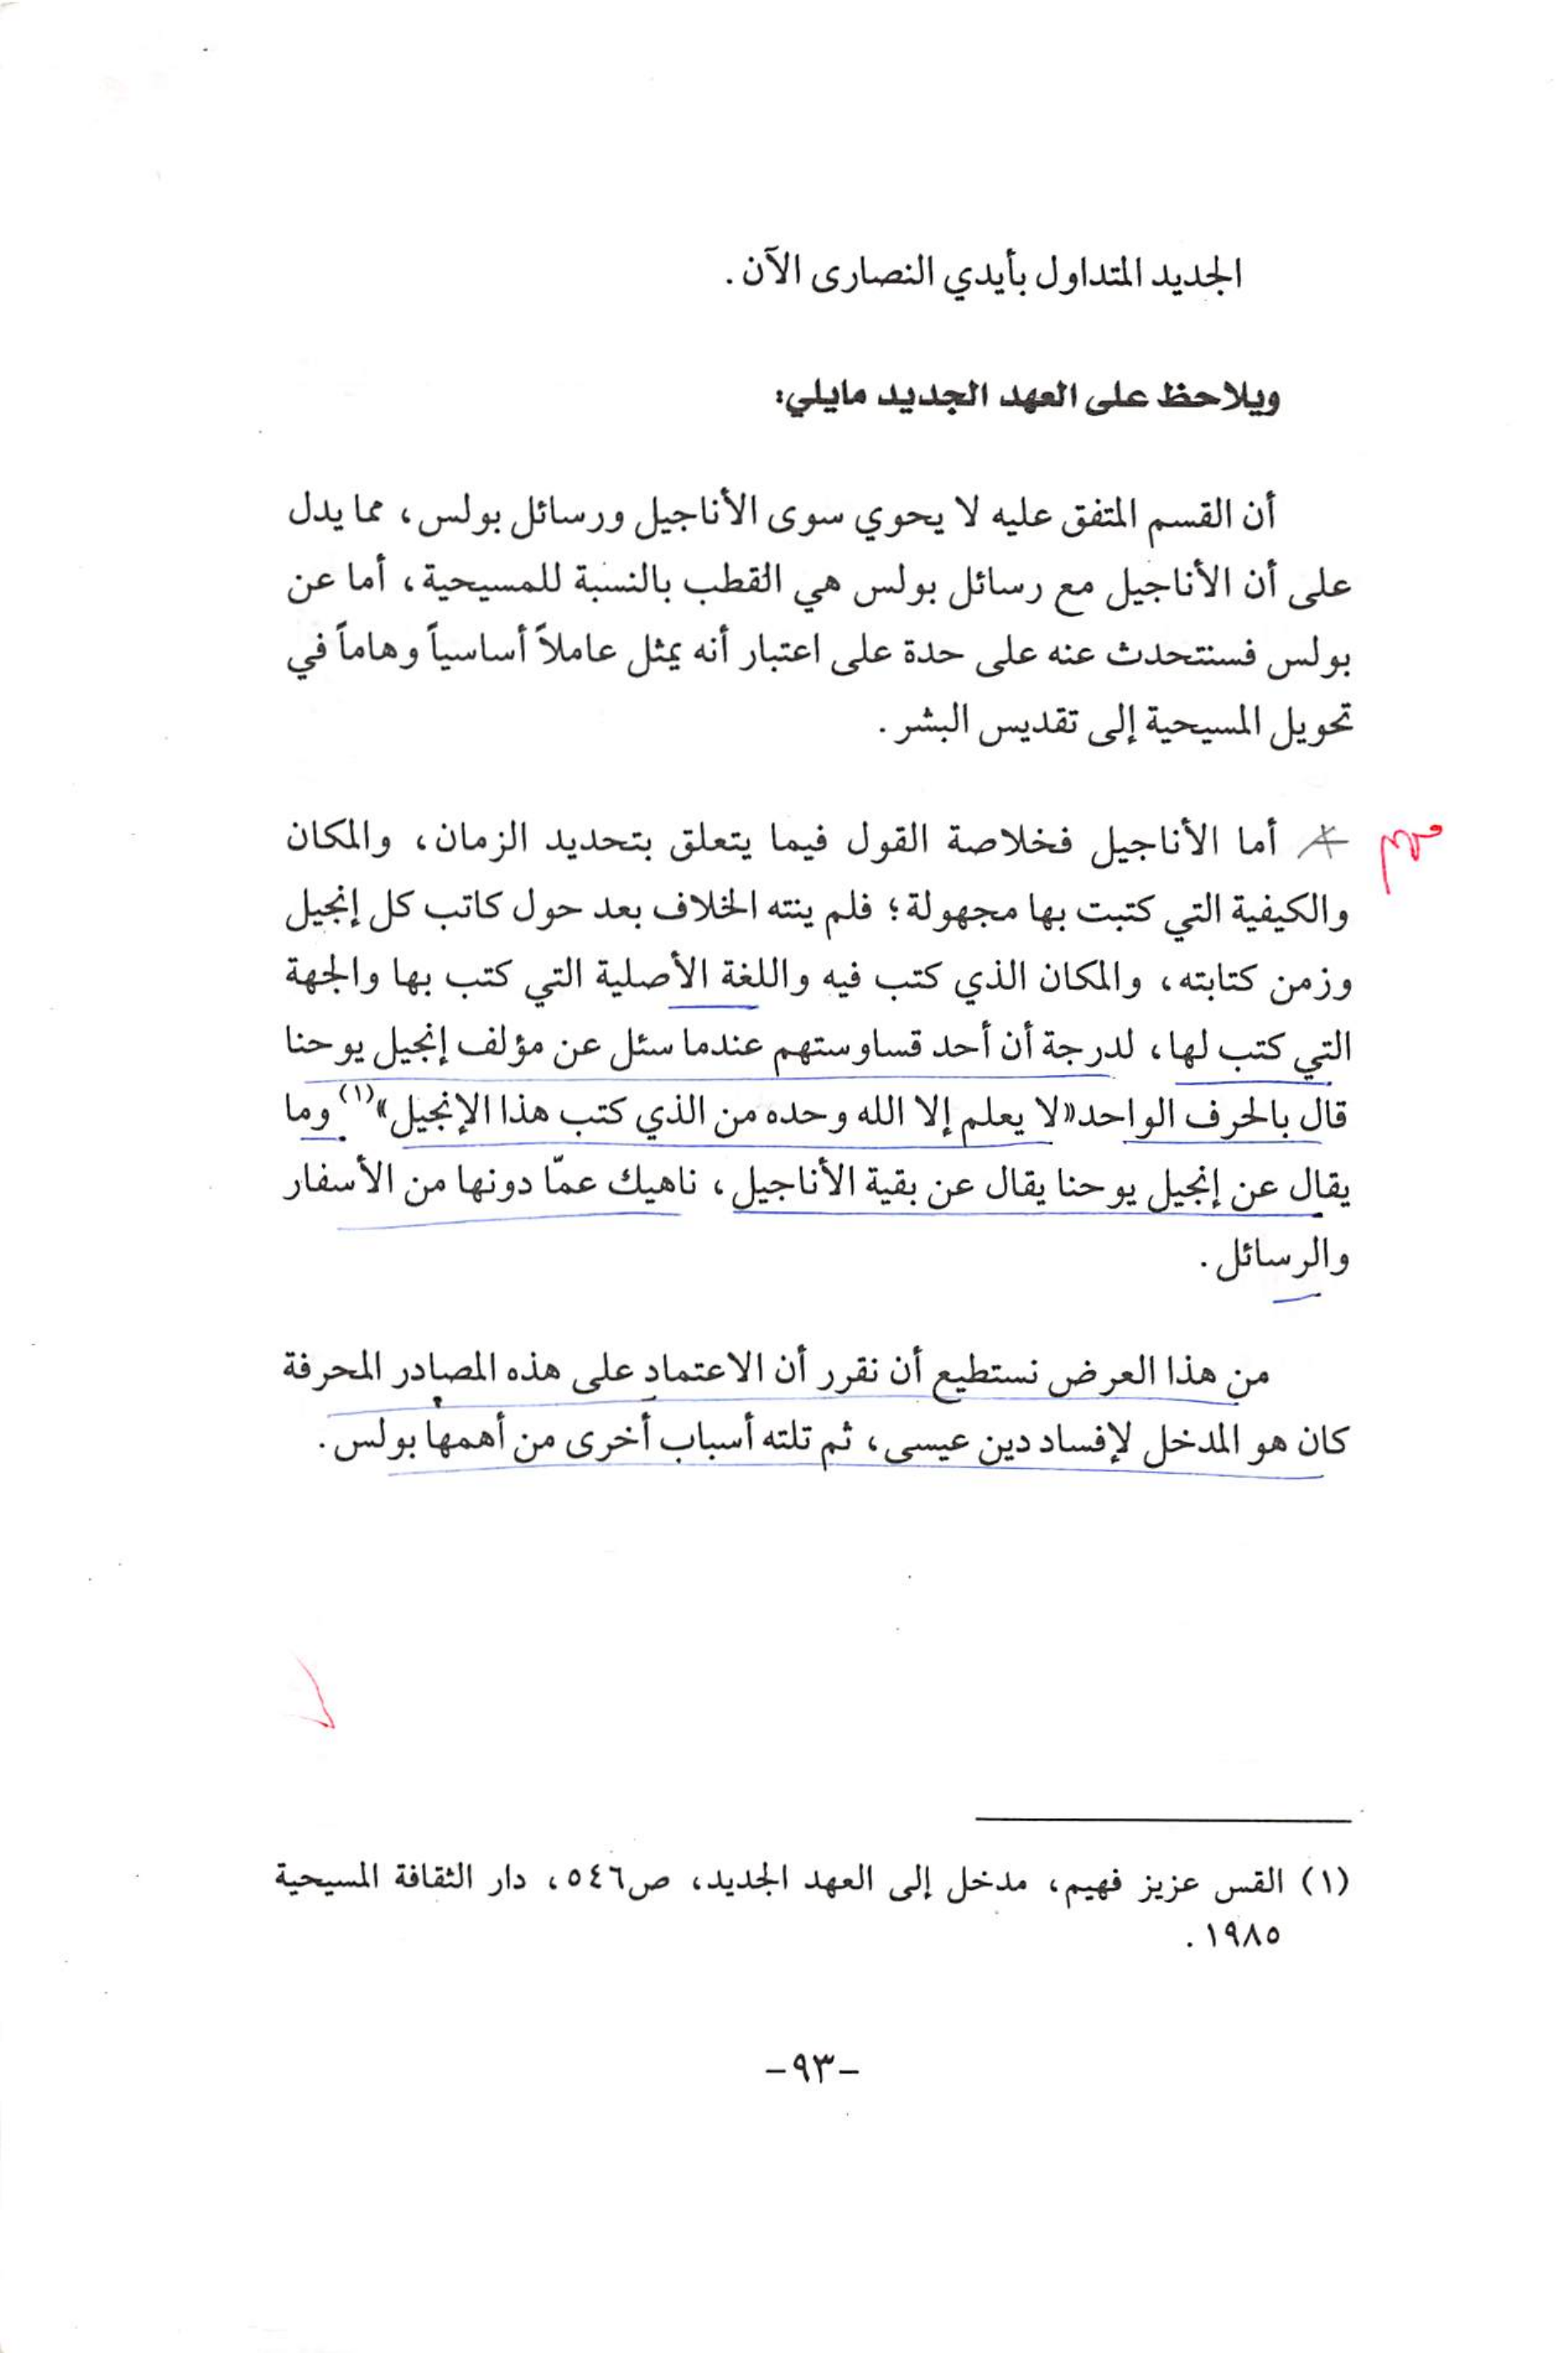 الجديد المتداول بأيدي النصارى الآن.
ويلاحظ على العهد الجديد مايلي:
أن القسم المتفق عليه لا يحوي سوى الأناجيل ورسائل بولس، مما يدل
على أن الأناجيل مع رسائل بولس هي القطب بالنسبة للمسيحية، أما عن
بولس فسنتحدث عنه على حدة على اعتبار أنه يمثل عاملاً أساسياً وهاماً في
تحويل المسيحية إلى تقديس البشر.
أما الأناجيل فخلاصة القول فيما يتعلق بتحديد الزمان، والمكان
والكيفية التي كتبت بها مجهولة؛ فلم ينته الخلاف بعد حول كاتب كل إنجيل
وزمن كتابته، والمكان الذي كتب فيه واللغة الأصلية التي كتب بها والجهة
التي كتب لها، لدرجة أن أحد قساوستهم عندما سئل عن مؤلف إنجيل يوحنا
قال بالحرف الواحد «لا يعلم إلا الله وحده من الذي كتب هذا الإنجيل»(١) وما
يقال عن إنجيل يوحنا يقال عن بقية الأناجيل، ناهيك عمّا دونها من الأسفار
والرسائل.
من هذا العرض نستطيع أن نقرر أن الاعتماد على هذه المصادر المحرفة
كان هو المدخل لإفساد دين عيسى، ثم تلته أسباب أخرى من أهمها بولس.
(١) القس عزيز فهيم، مدخل إلى العهد الجديد، ص٥٤٦، دار الثقافة المسيحية
١٩٨٥.
-٩٣-